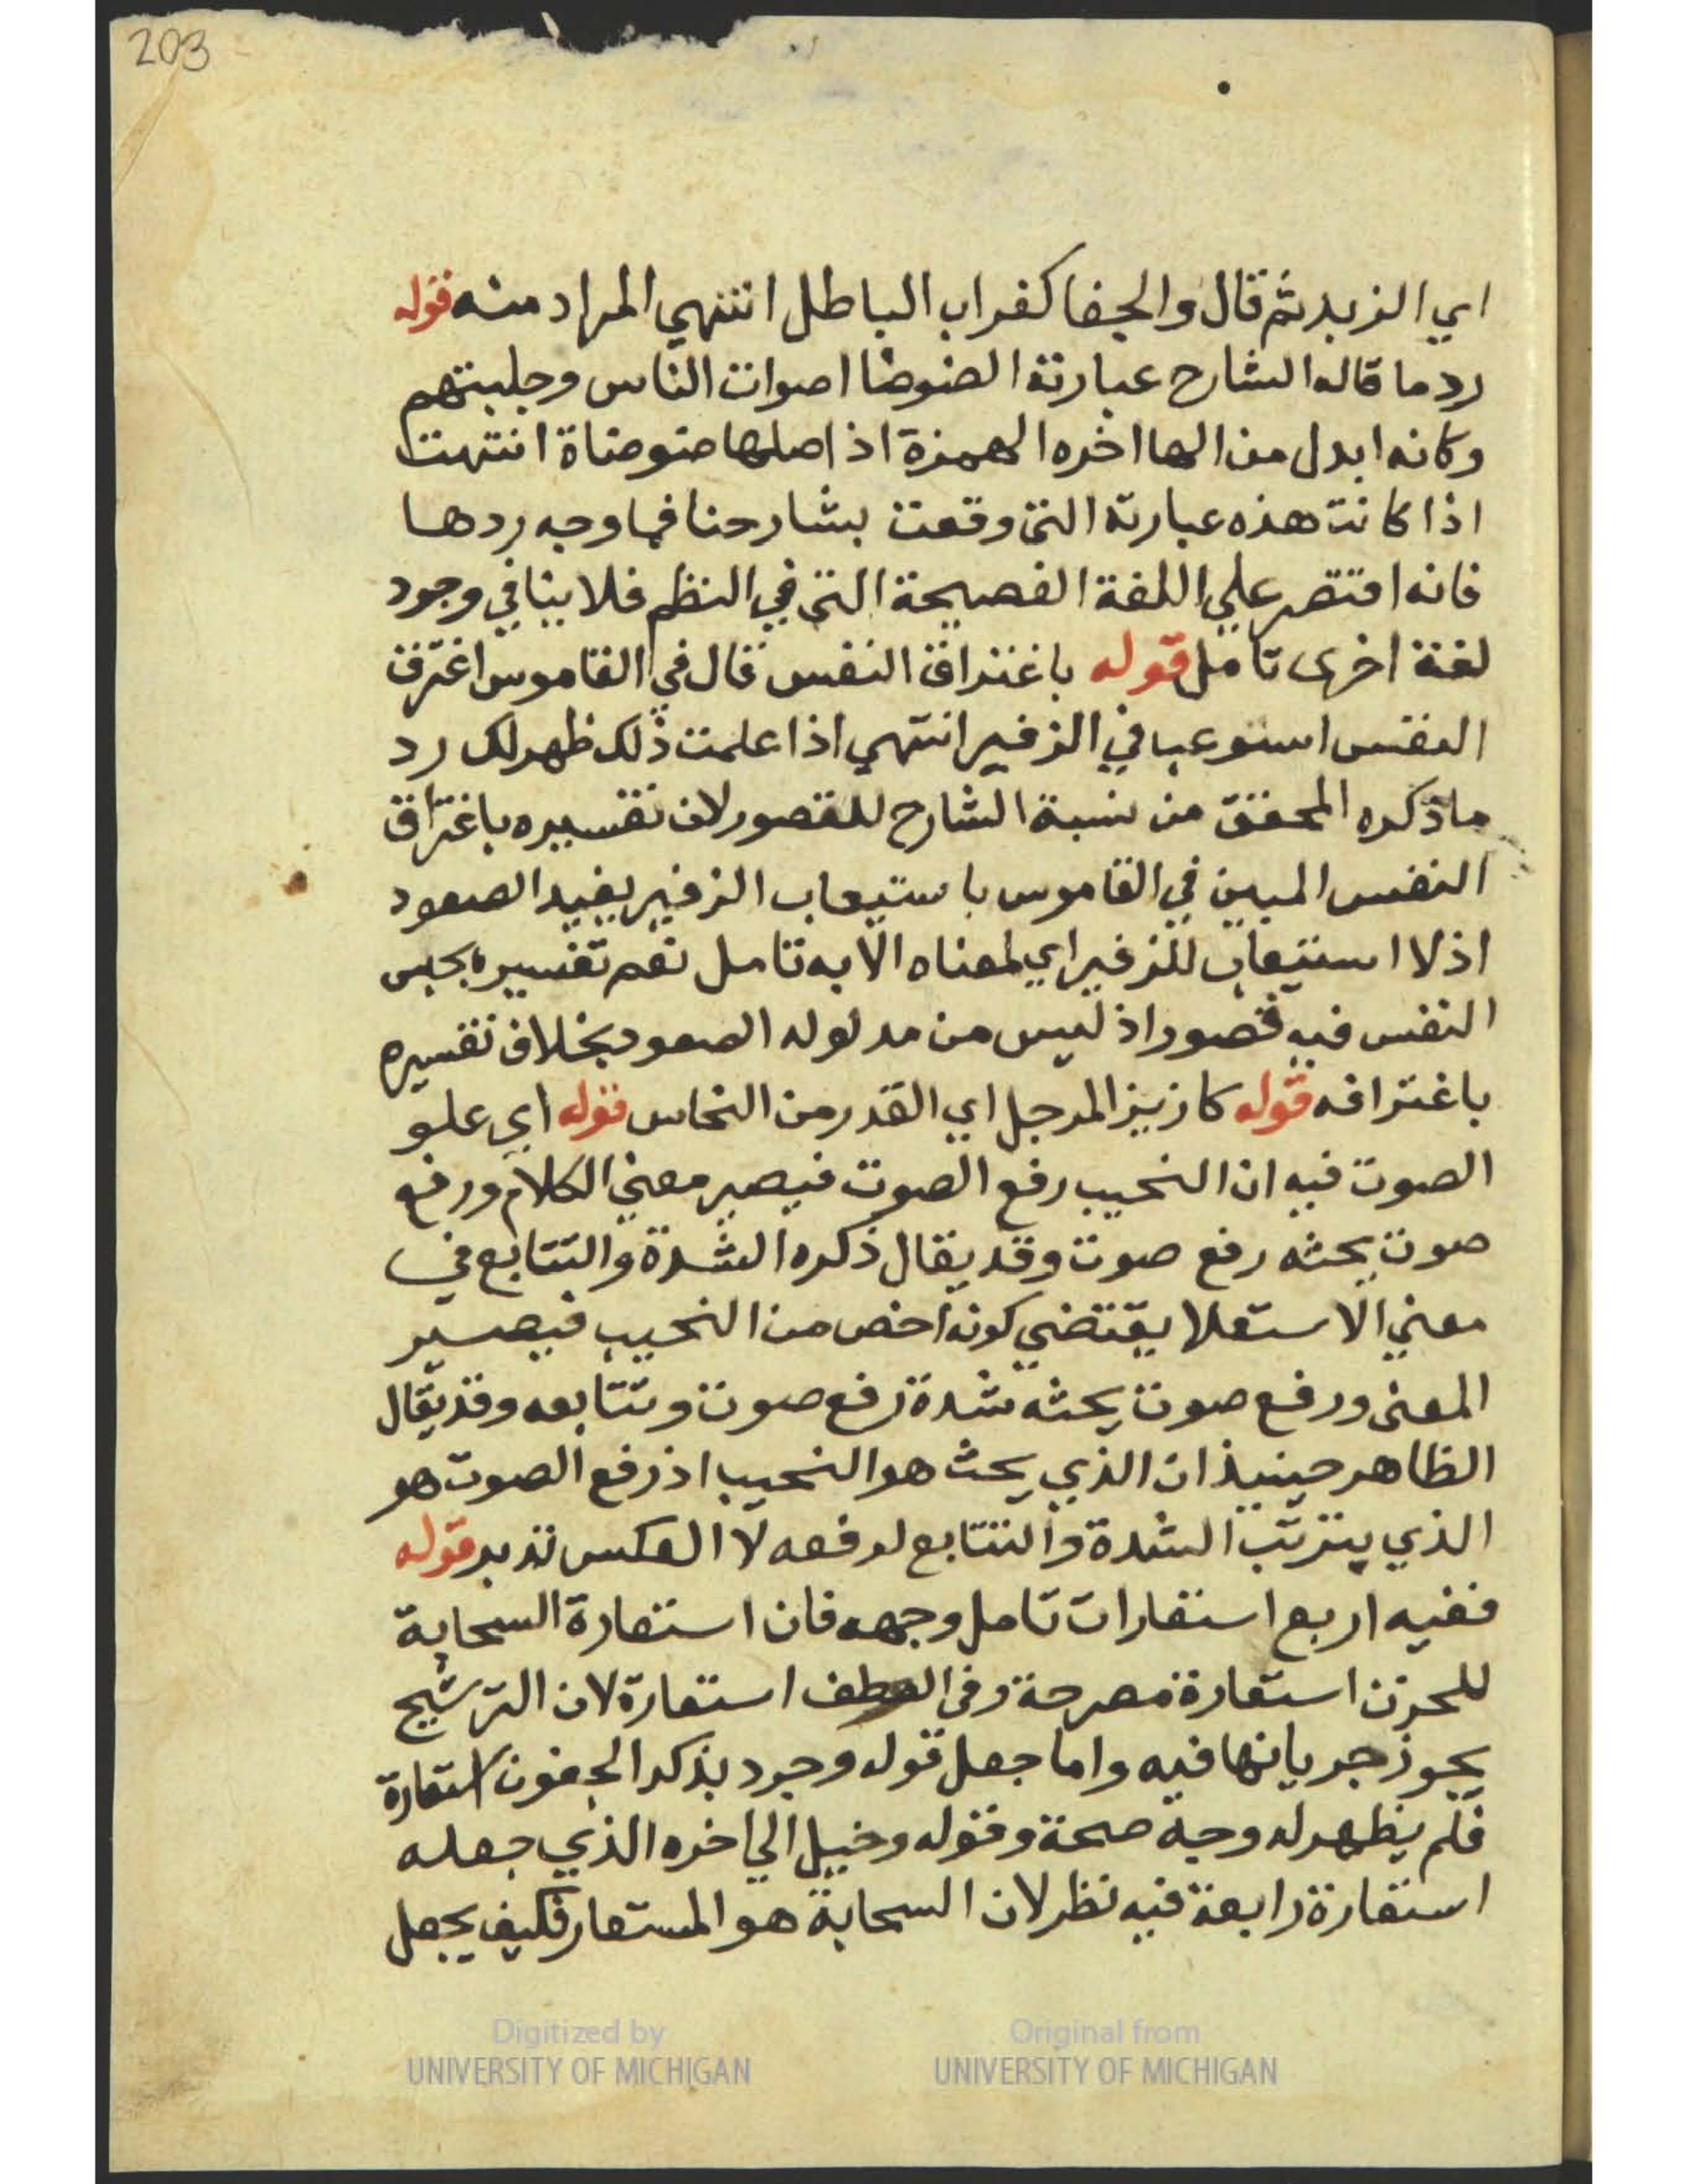 203
اي الزبد ثم قال والجفا كغراب الباطل انتهي المراد منه قوله
رد ما قاله الشارح عبارته الضوضا اصوات الناس وجلبتهم
وكانه ابدل من الها اخره الهمزة اذ اصلها ضوضاة انتهت
اذا كانت هذه عبارته التي وقعت بشارحنا فما وجه ردها
فانه اقتصر علي اللغة الفصيحة التي في النظم فلا ينافي وجود
لغة اخرى تامل قوله باغتراق النفس قال في القاموس اغترق
النفس استوعب في الزفير انتهي اذا علمت ذلك ظهر لك رد
ما ذكره المحقق من نسبة الشارح للقصور لان تفسيره باغتراق
النفس المبين في القاموس باستيعاب الزفير يفيد الصعود
اذ لا استيعاب للزفير اي لمعناه الا به تامل نعم تفسيره بحبس
النفس فيه قصور اذ ليس من مدلوله الصعود بخلاف تفسيره
باغتراقه قوله كازيز المرجل اي القدر من النحاس قوله اي علو
الصوت فيه ان النحيب رفع الصوت فيصير معني الكلام ورفع
صوت يحثه رفع صوت وقد يقال ذكره الشدة والتتابع في
معني الاستعلا يقتضي كونه اخص من النحيب فيصير
المعنى ورفع صوت يحثه شدة رفع صوت وتتابعه وقد يقال
الظاهر حينيذ ان الذي يحث هو النحيب اذ رفع الصوت هو
الذي يترتب الشدة والتتابع لرفعه لا العكس تدبر قوله
ففيه اربع استعارات تامل وجهه فان استعارة السحابة
للحزن استعارة مصرحة وفى الوطف استعارة لان الترشيح
يجوز جريانها فيه واما جعل قوله وجرد بذكر الجفون استعارة
فلم يظهر له وجه صحة وقوله وخيل الي اخره الذي جعله
استعارة رابعة فيه نظر لان السحابة هو المستعار فكيف يجعل
Digitized by UNIVERSITY OF MICHIGAN
Original from UNIVERSITY OF MICHIGAN